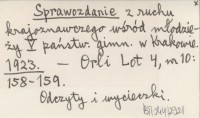 Sprawozdanie z ruchu
krajoznawczego wśród młodzie-
ży V państw. gimn. w Krakowie.
1923. — Orli Lot 4, nr 10:
158-159.
Odczyty i wycieczki.